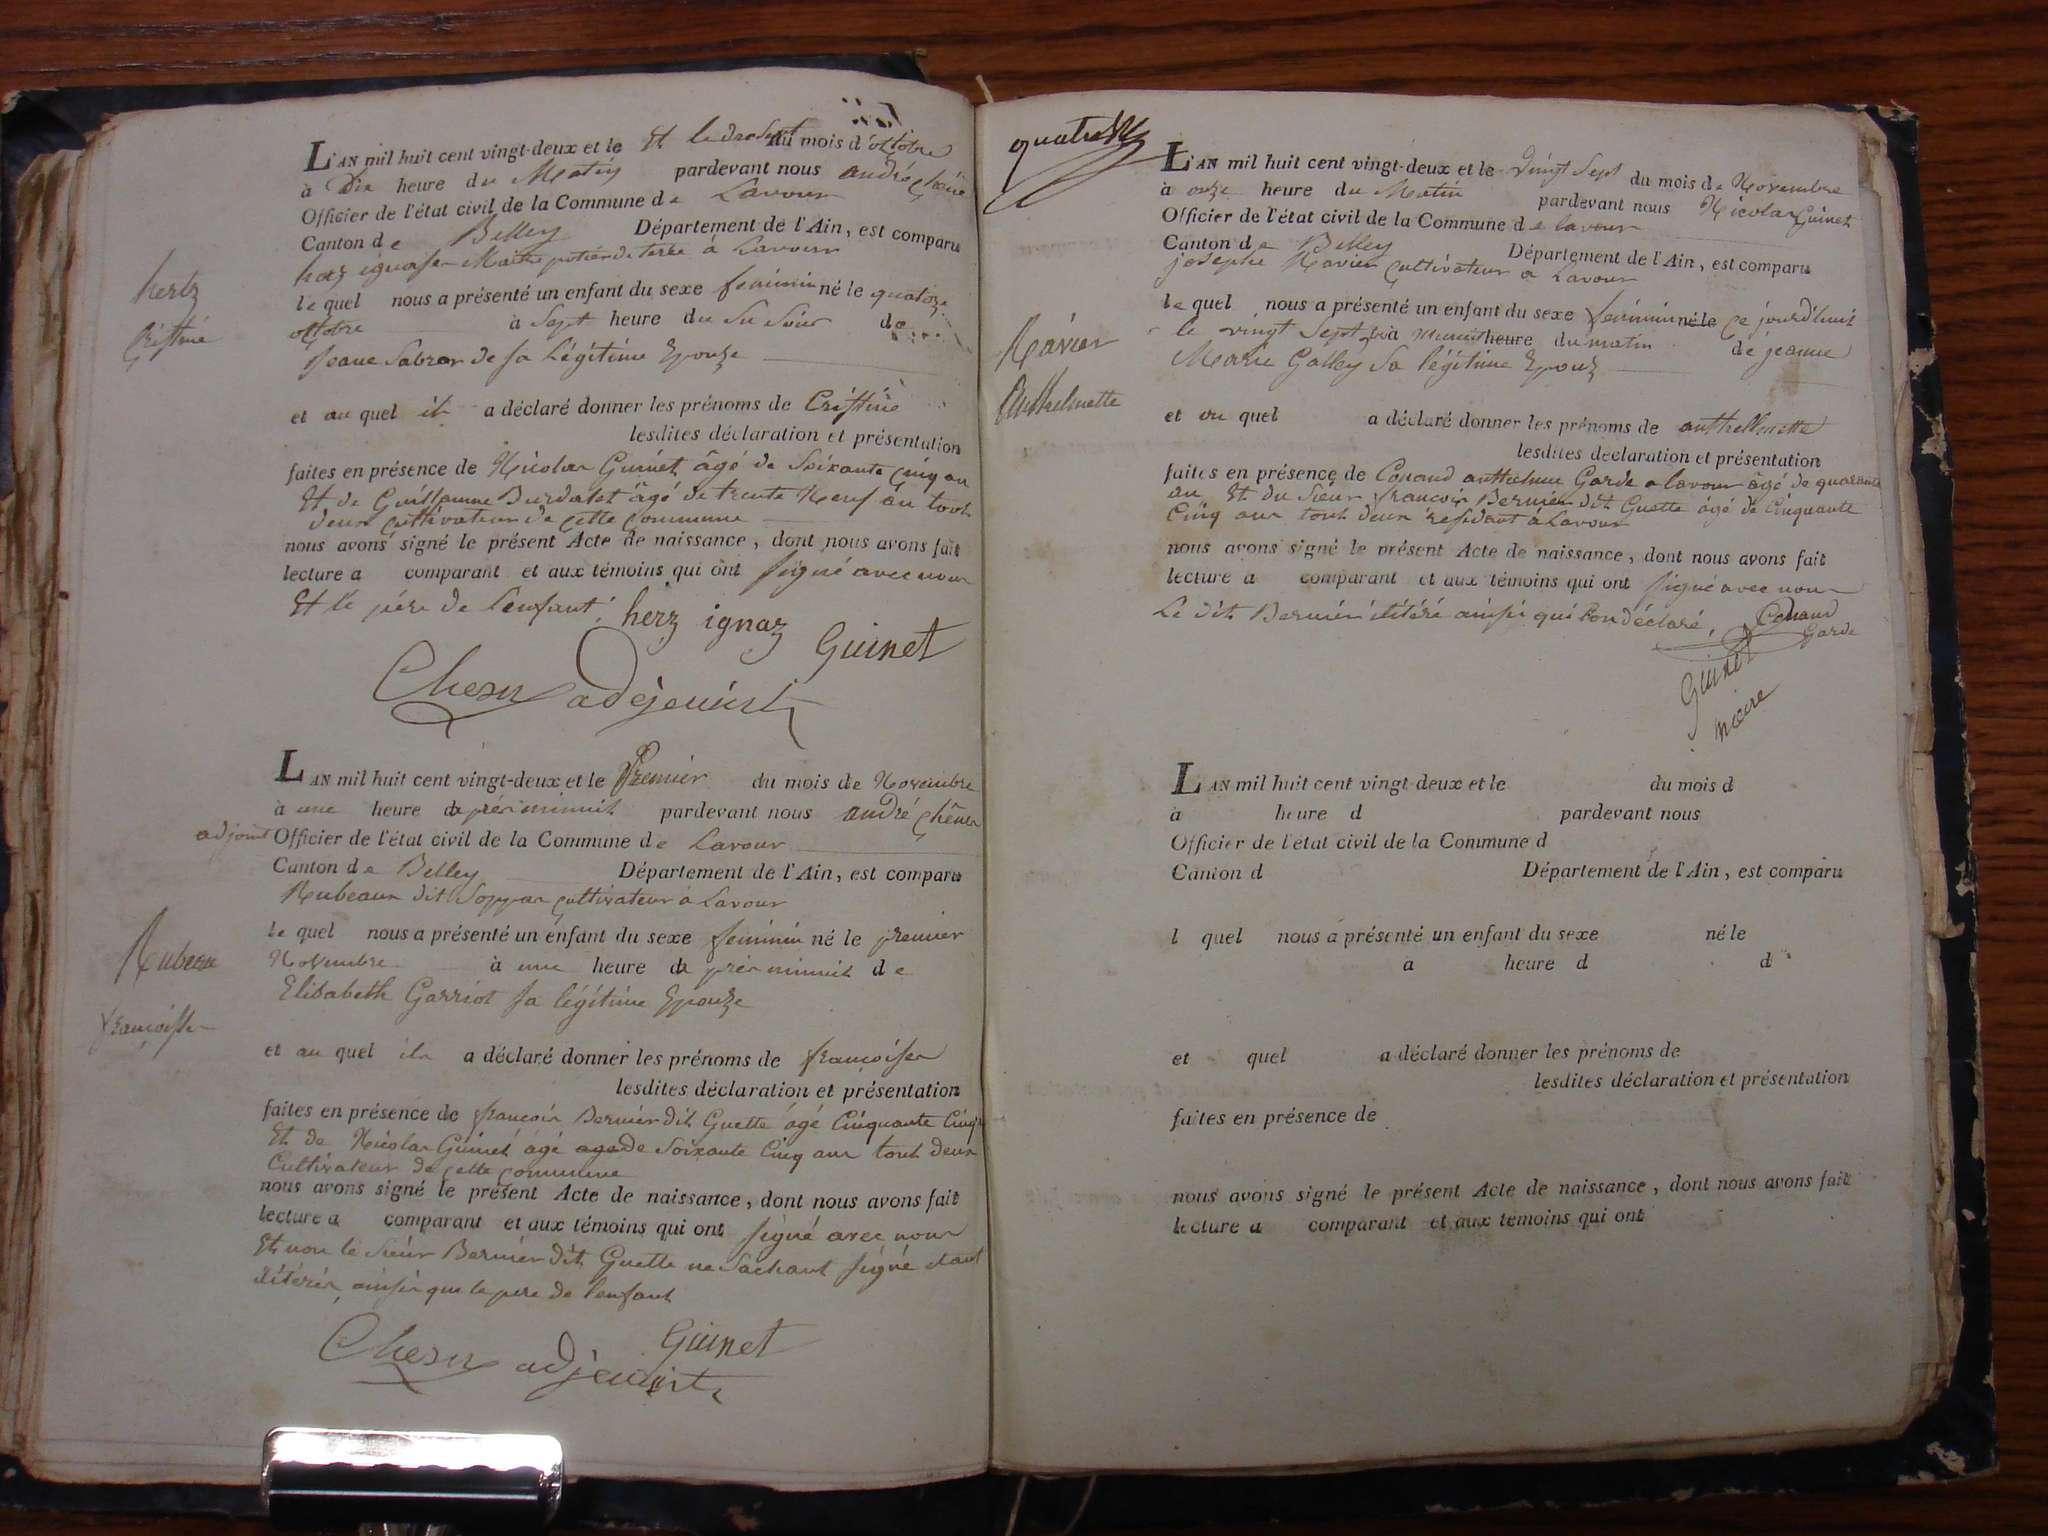 L'AN mil huit cent vingt-deux et le Et le du mois d'octobre
à Dix heure du Matin pardevant nous andré chêne
Officier de l'état civil de la Commune de Lavour
Canton de Belley Département de l'Ain, est comparu
Maitre potier de terre à Lavour
hertz
Cristine
le quel nous a présenté un enfant du sexe feminin né le quatorze
octobre à Sept heure du Soir de
Jeane de sa Légitime Epouze
et au quel il a déclaré donner les prénoms de Cristine
lesdites déclaration et présentation
faites en présence de Nicolas Guinet âgé de Soixante cinq an
Et de Guillaume Burdalet âgé de trente Neuf an tout
deux cultivateur de cette commune
nous avons signé le présent Acte de naissance, dont nous avons fait
lecture a comparant et aux témoins qui ont signé avec nous
Et le père de L'enfant. herz ignaz
Guinet
Chesn adejouint
L'AN mil huit cent vingt-deux et le Premier du mois de Novembre
à une heure d aprés minuit pardevant nous andré chêne
adjoint Officier de l'état civil de la Commune de Lavour
Canton de Belley Département de l'Ain, est comparu
Rubeaux dit cultivateur à Lavour
Rubeau
françoisse
le quel nous a présenté un énfant du sexe feminin né le premier
Novembre à une heure d aprés minuit de
Elisabeth Garriot sa légitime Epouze
et au quel il a déclaré donner les prénoms de françoise
lesdites déclaration et présentation
faites en présence de françois Bernier dit Guette âgé Cinquante Cinq
Et de Nicolas Guinet agé age de Soixante Cinq ans tout deux
Cultivateur de cette commune
nous avons signé le présent Acte de naissance, dont nous avons fait
lecture a comparant et aux témoins qui ont signé avec nous
Et non le Sieur Bernier dit Guette ne Sachant signé étant
ainsi que le pere de l'enfant
Guinet
Chesn adjeuint
L'AN mil huit cent vingt-deux et le vingt Sept du mois de Novembre
à onze heure du Matin pardevant nous Nicolas Guinet
Officier de l'état civil de la Commune de lavour
Canton de Belley Département de l'Ain, est comparu
josephe Ravier cultivateur a Lavour
Ravier
Anthelmette
le quel nous a présenté un enfant du sexe feminin né le ce jourd'huit
le vingt Sept à heure du matin de jeanne
Marie Galley Sa légitime Epouze
et au quel a déclaré donner les prénoms de anthelmette
lesdites déclaration et présentation
faites en présence de Conand anthelme Garde a lavour âgé de quarante
an Et du Sieur françois Bernier dit Guette âgé de Cinquante
Cinq ans tout deux residant à Lavour
nous avons signé le présent Acte de naissance, dont nous avons fait
lecture a comparant et aux témoins qui ont signé avec nous
Le dit Bernier ainsi qui l'on déclaré,
Conand
Garde
Guinet
maire
L'AN mil huit cent vingt-deux et le du mois d
à heure d pardevant nous
Officier de l'état civil de la Commune d
Canton d Département de l'Ain, est comparu
l quel nous a présenté un enfant du sexe né le
à heure d d
et quel a déclaré donner les prénoms de
lesdites déclaration et présentation
faites en présence de
nous avons signé le présent Acte de naissance, dont nous avons fait
lecture a comparant et aux témoins qui ont